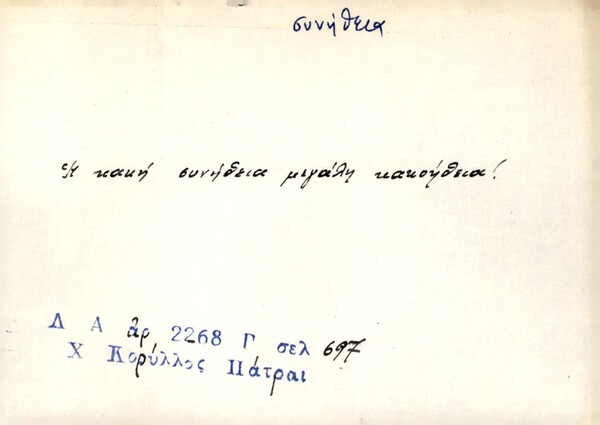 συνήθεια
Ἡ κακή συνήθεια μεγάλη κακοήθεια!
Λ Α ἀρ 2268 Γ σελ 697
Χ Κορύλλος Πάτραι